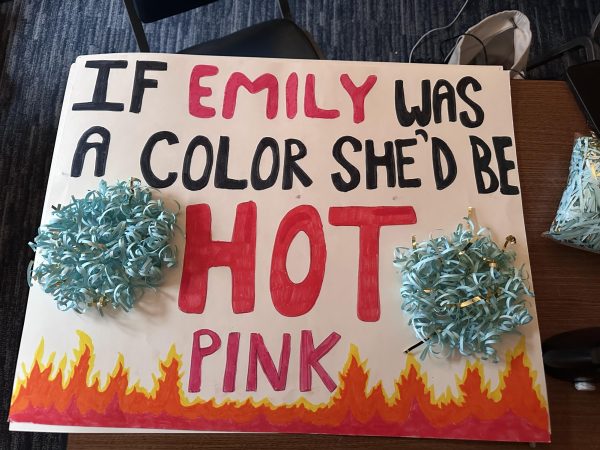 IF EMILY WAS
A COLOR SHE'D BE
HOT
PINK